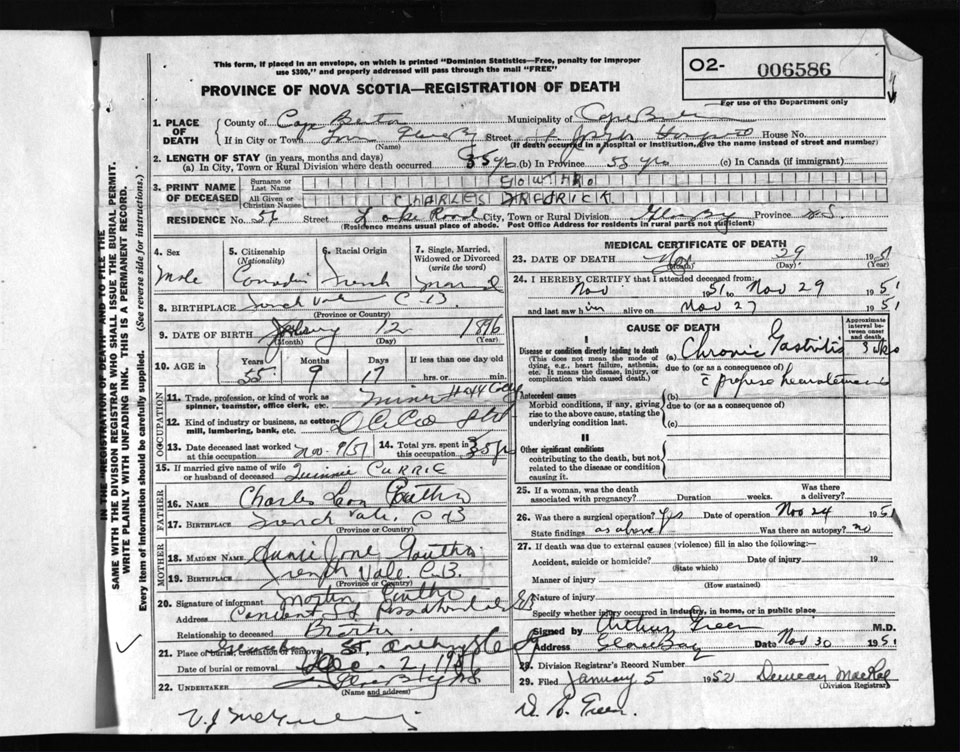 This form, if placed in an envelope, on which is printed "Dominion Statistics—Free, penalty for improper
use $300," and properly addressed will pass through the mail "FREE"
O2- 006586
For use of the Department only
PROVINCE OF NOVA SCOTIA—REGISTRATION OF DEATH
1. PLACE OF DEATH County of Cape Breton Municipality of Cape Breton
If in City or Town Town Glace B Street St Joseph Hospital House No.
(Name) (If death occurred in a hospital or institution, give the name instead of street and number)
2. LENGTH OF STAY (in years, months and days)
(a) In City, Town or Rural Division where death occurred 35 yrs (b) In Province 55 yrs (c) In Canada (if immigrant)
3. PRINT NAME OF DECEASED Surname or Last Name GOUTHRO
All Given or Christian Names CHARLES
RESIDENCE No. 56 Street Lake Road City, Town or Rural Division Glace By Province NS.
(Residence means usual place of abode. Post Office Address for residents in rural parts not sufficient)
4. Sex Male
5. Citizenship (Nationality) Canadian
6. Racial Origin French
7. Single, Married, Widowed or Divorced (write the word) Married
8. BIRTHPLACE French Vale C.B.
(Province or Country)
9. DATE OF BIRTH 12 1896
(Month) (Day) (Year)
10. AGE in Years 55 Months 9 Days 17 If less than one day old hrs. or min.
OCCUPATION
11. Trade, profession, or kind of work as spinner, teamster, office clerk, etc. Miner
12. Kind of industry or business, as cotton-mill, lumbering, bank, etc.
13. Date deceased last worked at this occupation Nov. 9/51
14. Total yrs. spent in this occupation 35 yrs
15. If married give name of wife or husband of deceased CURRIE
FATHER
16. NAME Charles Leon Gouthro
17. BIRTHPLACE French Vale, C B
(Province or Country)
MOTHER
18. MAIDEN NAME Annie Jane Gouthro
19. BIRTHPLACE French Vale C.B.
(Province or Country)
20. Signature of informant Martin Gouthro
Address
Relationship to deceased Brother
21. Place of burial, cremation or removal St. Anthonys
Date of burial or removal Dec. 2
22. UNDERTAKER
(Name and address)
MEDICAL CERTIFICATE OF DEATH
23. DATE OF DEATH Nov 29 1951
(Month) (Day) (Year)
24. I HEREBY CERTIFY that I attended deceased from:
Nov 1951 to Nov 29 1951
and last saw him alive on Nov 27 1951
CAUSE OF DEATH
Approximate interval between onset and death
I
Disease or condition directly leading to death
(This does not mean the mode of dying, e.g., heart failure, asthenia, etc. It means the disease, injury, or complication which caused death.)
(a) Chronic Gastritis 3 wks
due to (or as a consequence of)
Antecedent causes
Morbid conditions, if any, giving rise to the above cause, stating the underlying condition last.
(b)
due to (or as a consequence of)
(c)
II
Other significant conditions
contributing to the death, but not related to the disease or condition causing it.
25. If a woman, was the death associated with pregnancy? Duration weeks. Was there a delivery?
26. Was there a surgical operation? Yes Date of operation Nov 24 1951
State findings as above Was there an autopsy? no
27. If death was due to external causes (violence) fill in also the following:—
Accident, suicide or homicide? Date of injury 19
(State which)
Manner of injury
(How sustained)
Nature of injury
Specify whether injury occurred in industry, in home, or in public place
Signed by Arthur Green M.D.
Address Glace Bay Date Nov 30 1951
28. Division Registrar's Record Number
29. Filed January 5 1952 Duncan MacRae
(Division Registrar)
IN THE "REGISTRATION OF DEATH" AND TO FILE THE
SAME WITH THE DIVISION REGISTRAR WHO SHALL ISSUE THE BURIAL PERMIT.
WRITE PLAINLY WITH UNFADING INK. THIS IS A PERMANENT RECORD.
Every item of information should be carefully supplied. (See reverse side for instructions.)